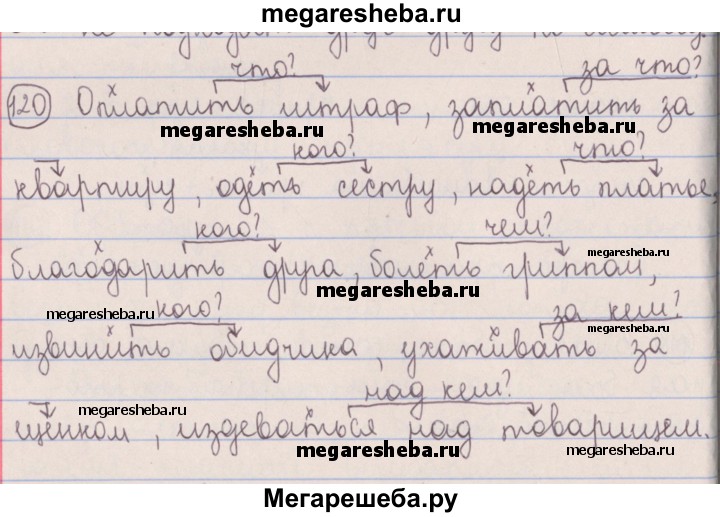 megaresheba.ru
что? за что?
120 Оплатить штраф, заплатить за
megaresheba.ru megaresheba.ru
кого? что?
квартиру, одеть сестру, надеть платье,
кого? чем?
megaresheba.ru
благодарить друга, болеть гриппом,
megaresheba.ru
megaresheba.ru кого? за кем?
megaresheba.ru
извинить обидчика, ухаживать за
над кем?
megaresheba.ru
щенком, издеваться над товарищем.
megaresheba.ru megaresheba.ru
Мегарешеба.ру